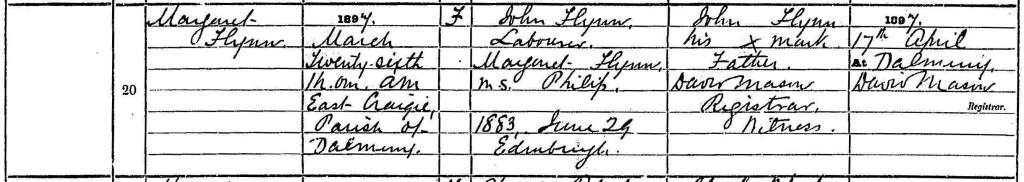 Margaret Flynn.
20
1897.
March
Twenty-sixth
1h. 0m. AM
East Craigie,
Parish of
Dalmeny.
F
John Flynn
Labourer.
Margaret Flynn,
m.s. Philip.
1883, June 29
Edinburgh.
John Flynn
his x mark
Father.
David Mason
Registrar,
Witness.
1897.
17th April
At Dalmeny,
David Mason
Registrar.